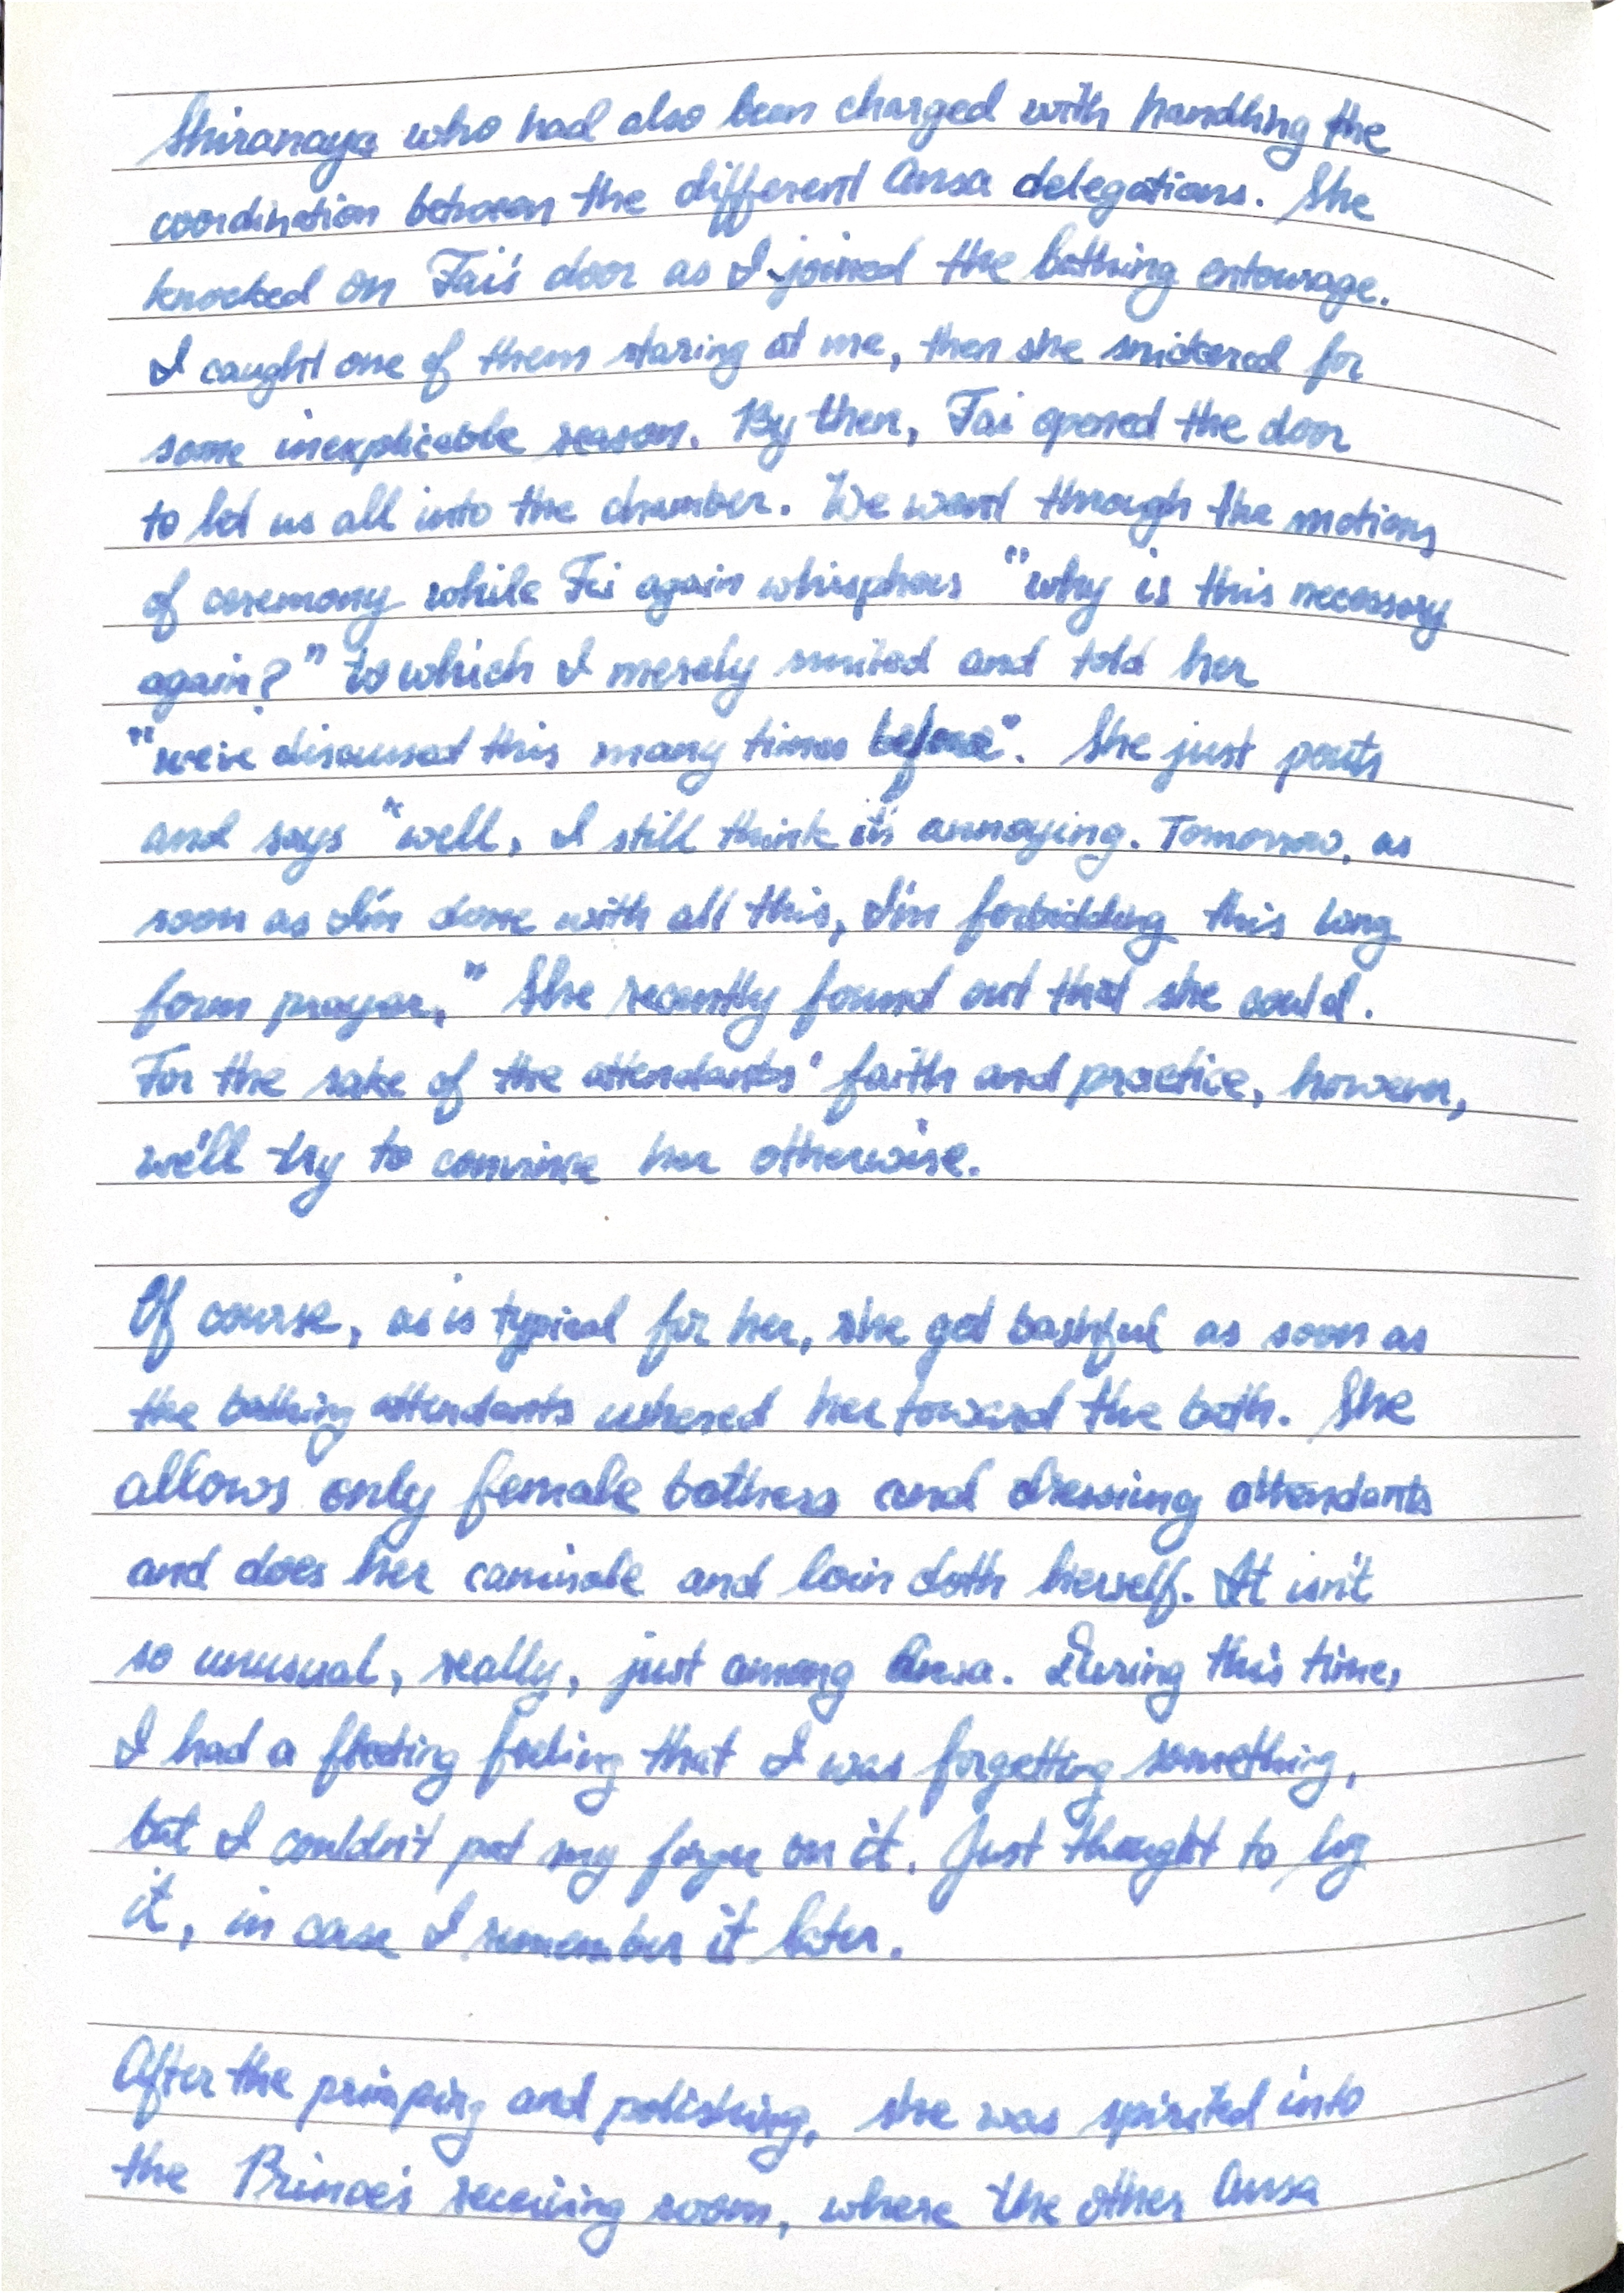 Shiranaya who had also been charged with handling the
coordination between the different Ansa delegations. She
knocked on Fai's door as I joined the bathing entourage.
I caught one of them staring at me, then she snickered for
some inexplicable reason. By then, Fai opened the door
to let us all into the chamber. We went through the motions
of ceremony while Fai again whisphers "why is this necessary
again?" to which I merely smiled and told her
"we've discussed this many times before". She just pouts
and says "well, I still think it's annoying. Tomorrow, as
soon as I'm done with all this, I'm forbidding this long
form prayer," She recently found out that she could.
For the sake of the attendants' faith and practice, however,
we'll try to convince her otherwise.
Of course, as is typical for her, she got bashful as soon as
the bathing attendants ushered her toward the bath. She
allows only female bathers and dressing attendants
and does her camisole and loin cloth herself. It isn't
so unusual, really, just among Ansa. During this time,
I had a fleeting feeling that I was forgetting something,
but I couldn't put my finger on it. Just thought to log
it, in case I remember it later.
After the primping and polishing, she was spirited into
the Prince's receiving room, where the other Ansa